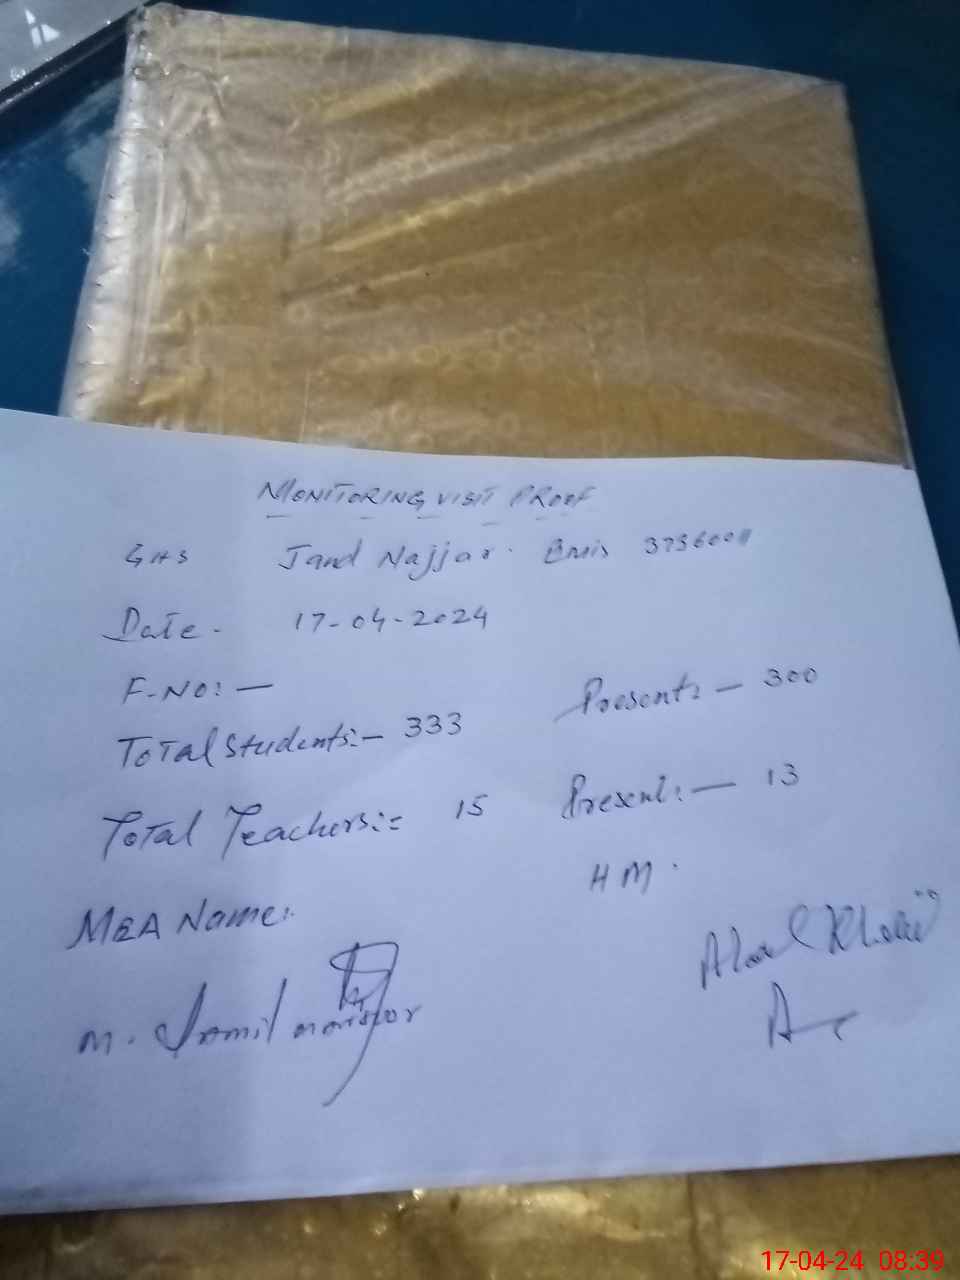 MONITORING VISIT PROOF
GHS Jand Najjar. Emis
Date - 17-04-2024
F-NO:-
Total Students:- 333 Present:- 300
Total Teachers:= 15 Present:- 13
HM.
MEA Name:
M. Jamil
17-04-24 08:39